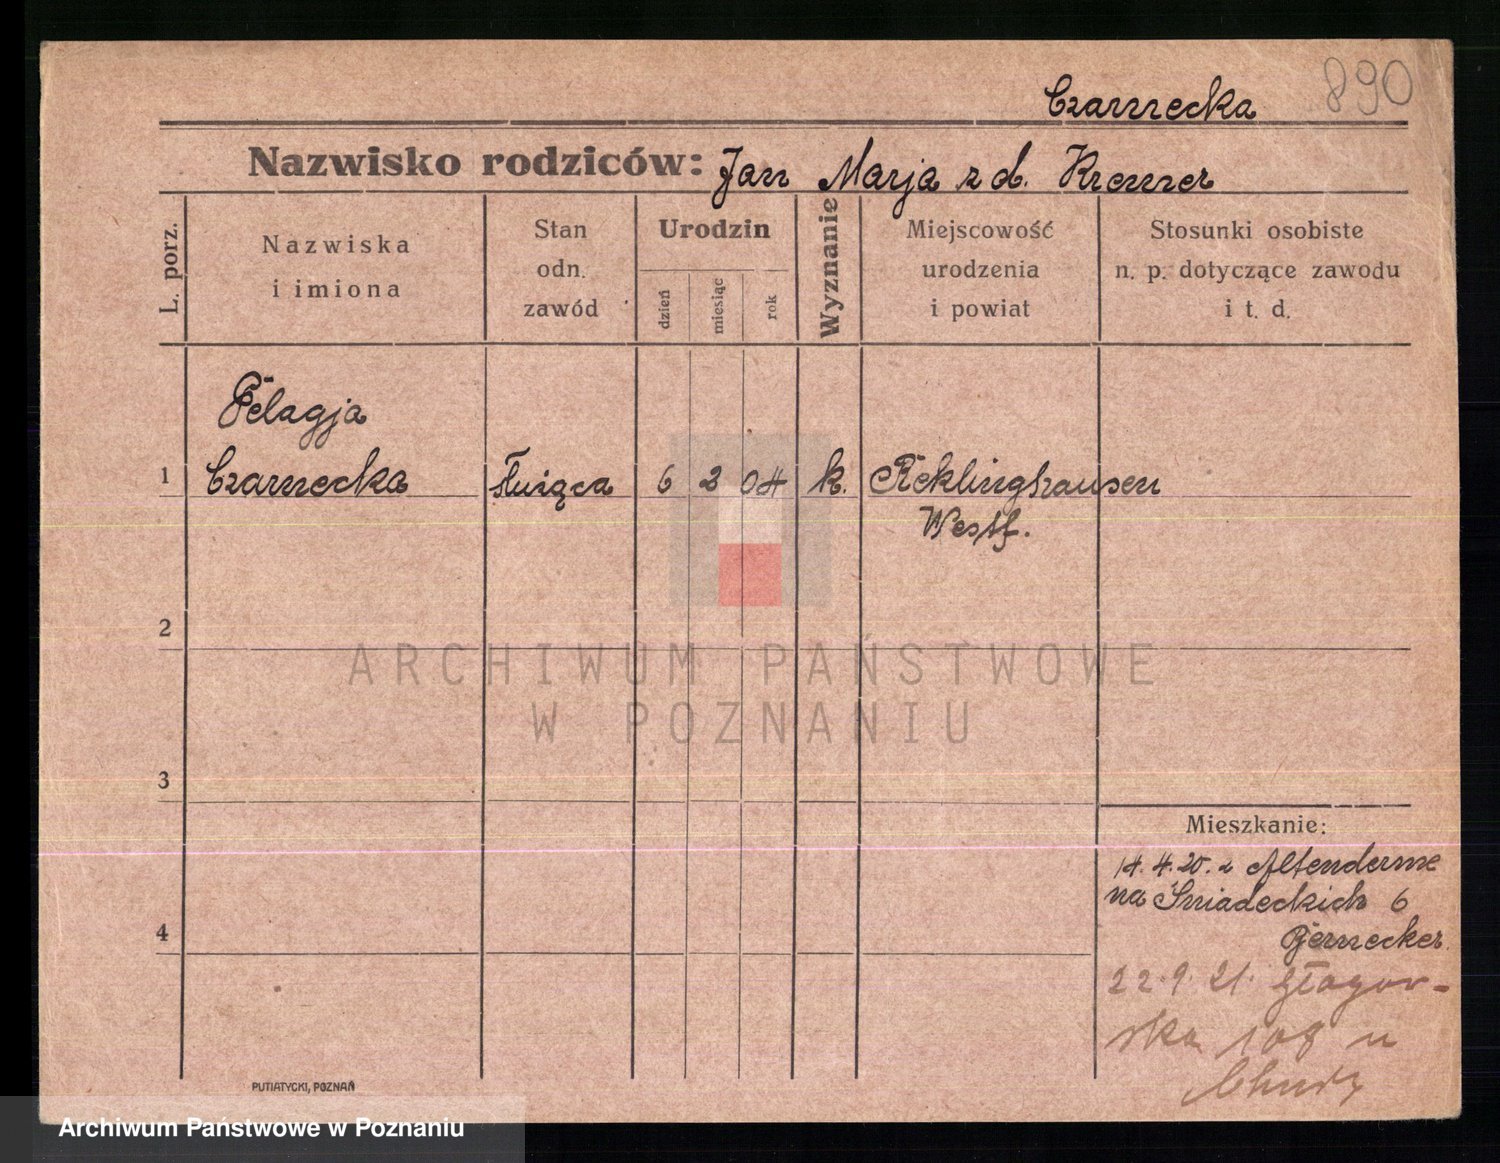 Czarnecka 890
Nazwisko rodziców: Jan Marja z d. Kremer
L. porz.
Nazwiska
i imiona
Stan
odn.
zawód
Urodzin
dzień
miesiąc
rok
Wyznanie
Miejscowość
urodzenia
i powiat
Stosunki osobiste
n. p. dotyczące zawodu
i t. d.
Pelagja
1 Czarnecka służąca 6 2 04 k. Reklinghausen
Westf.
2
ARCHIWUM PAŃSTWOWE
W POZNANIU
3
4
Mieszkanie:
14. 4. 20. z Altenderne
na Śniadeckich 6
22. 9. 21. Głogow-
ska 108 u
PUTIATYCKI, POZNAŃ
Archiwum Państwowe w Poznaniu